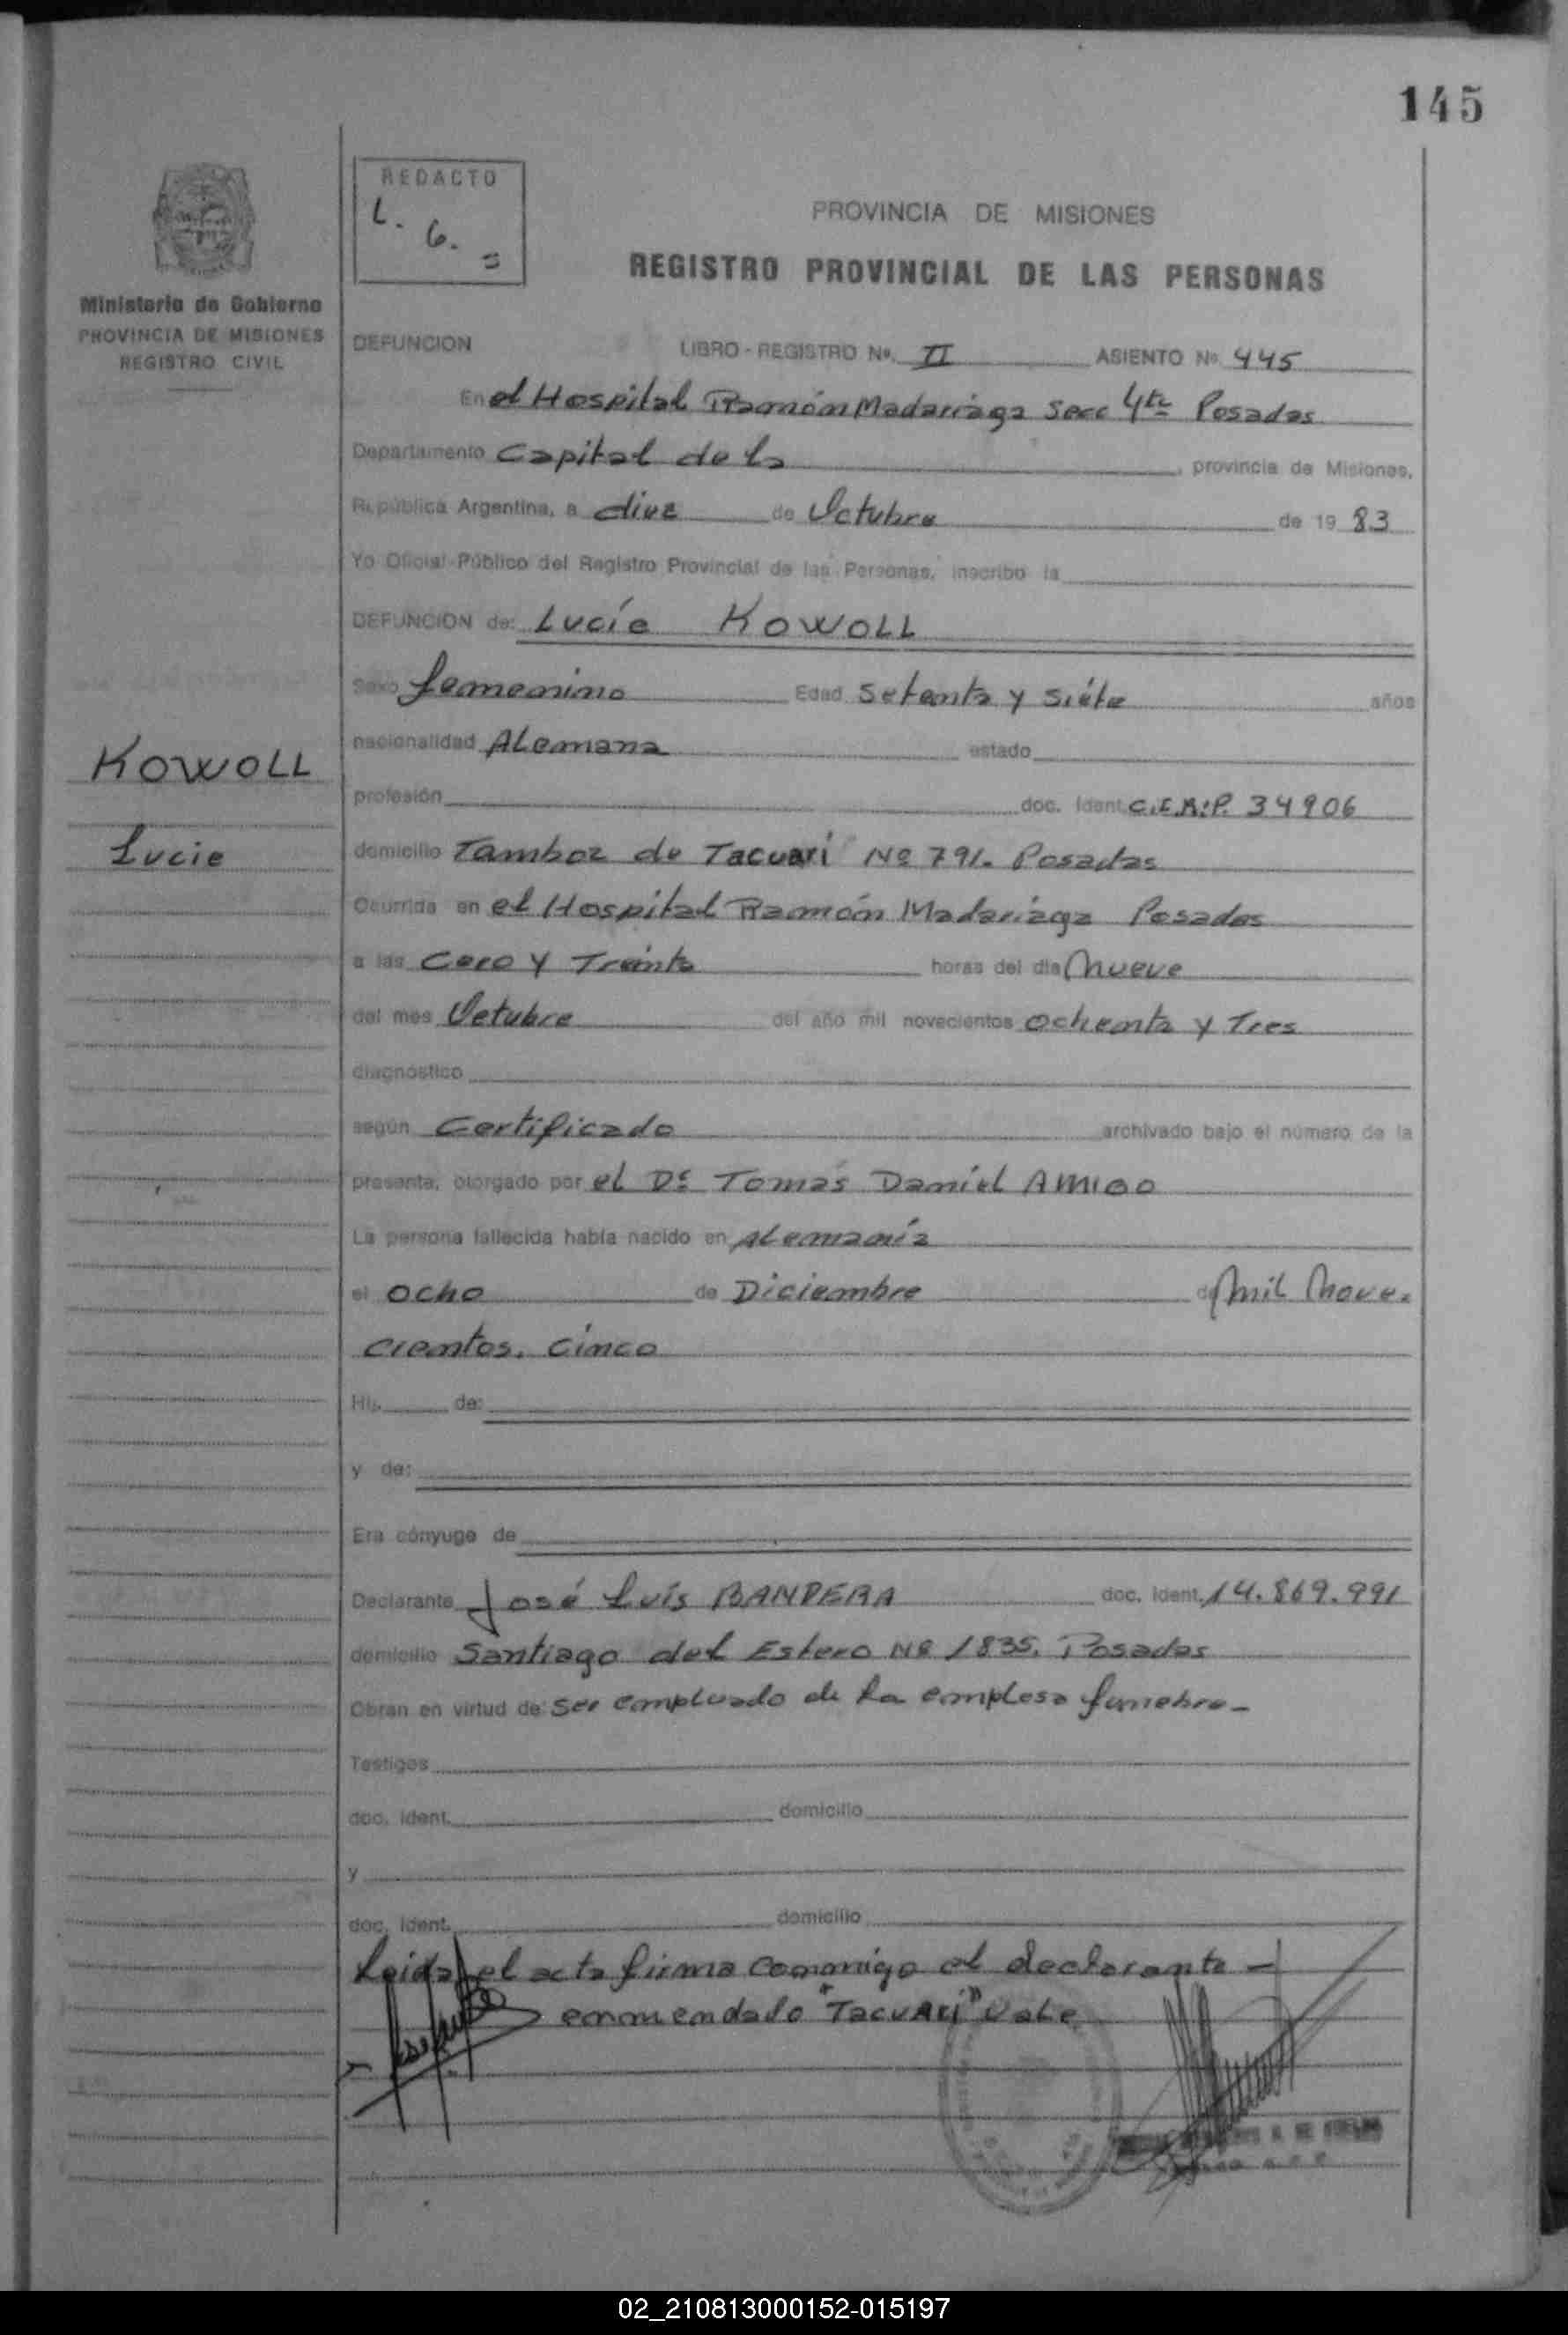 145
REDACTO
L. G. =
PROVINCIA DE MISIONES
REGISTRO PROVINCIAL DE LAS PERSONAS
Ministerio de Gobierno
PROVINCIA DE MISIONES
REGISTRO CIVIL
KOWOLL
Lucie
DEFUNCION LIBRO - REGISTRO Nº. II ASIENTO Nº 445
En el Hospital Ramón Madariaga Secc 4ta Posadas
Departamento Capital de la , provincia de Misiones,
República Argentina, a diez de Octubre de 19 83
Yo Oficial Público del Registro Provincial de las Personas, inscribo la
DEFUNCION de: Lucíe KOWOLL
Sexo femenino Edad Setenta y Siéte años
nacionalidad Alemana estado
profesión doc. Ident C.I.R.P. 34906
domicilio Tambor de Tacuarí Nº 791. Posadas
Ocurrida en el Hospital Ramón Madariaga Posadas
a las Cero y Treinta horas del día Nueve
del mes Octubre del año mil novecientos Ochenta y Tres
diagnóstico
según Certificado archivado bajo el número de la
presente, otorgado por el Dr Tomás Daniel AMIGO
La persona fallecida había nacido en Alemania
el Ocho de Diciembre de Mil Nove.
cientos. Cinco
Hij. de:
y de:
Era cónyuge de
Declarante José Luís BANDERA doc. ident. 14.869.991
domicilio Santiago del Estero Nº 1835. Posadas
Obran en virtud de: Ser empleado de la empresa funebre-
Testigos
doc. ident. domicilio
y
doc. ident. domicilio
Leida el acta firma conmigo el declarante -
enmendado "Tacuari" Vale
02_210813000152-015197